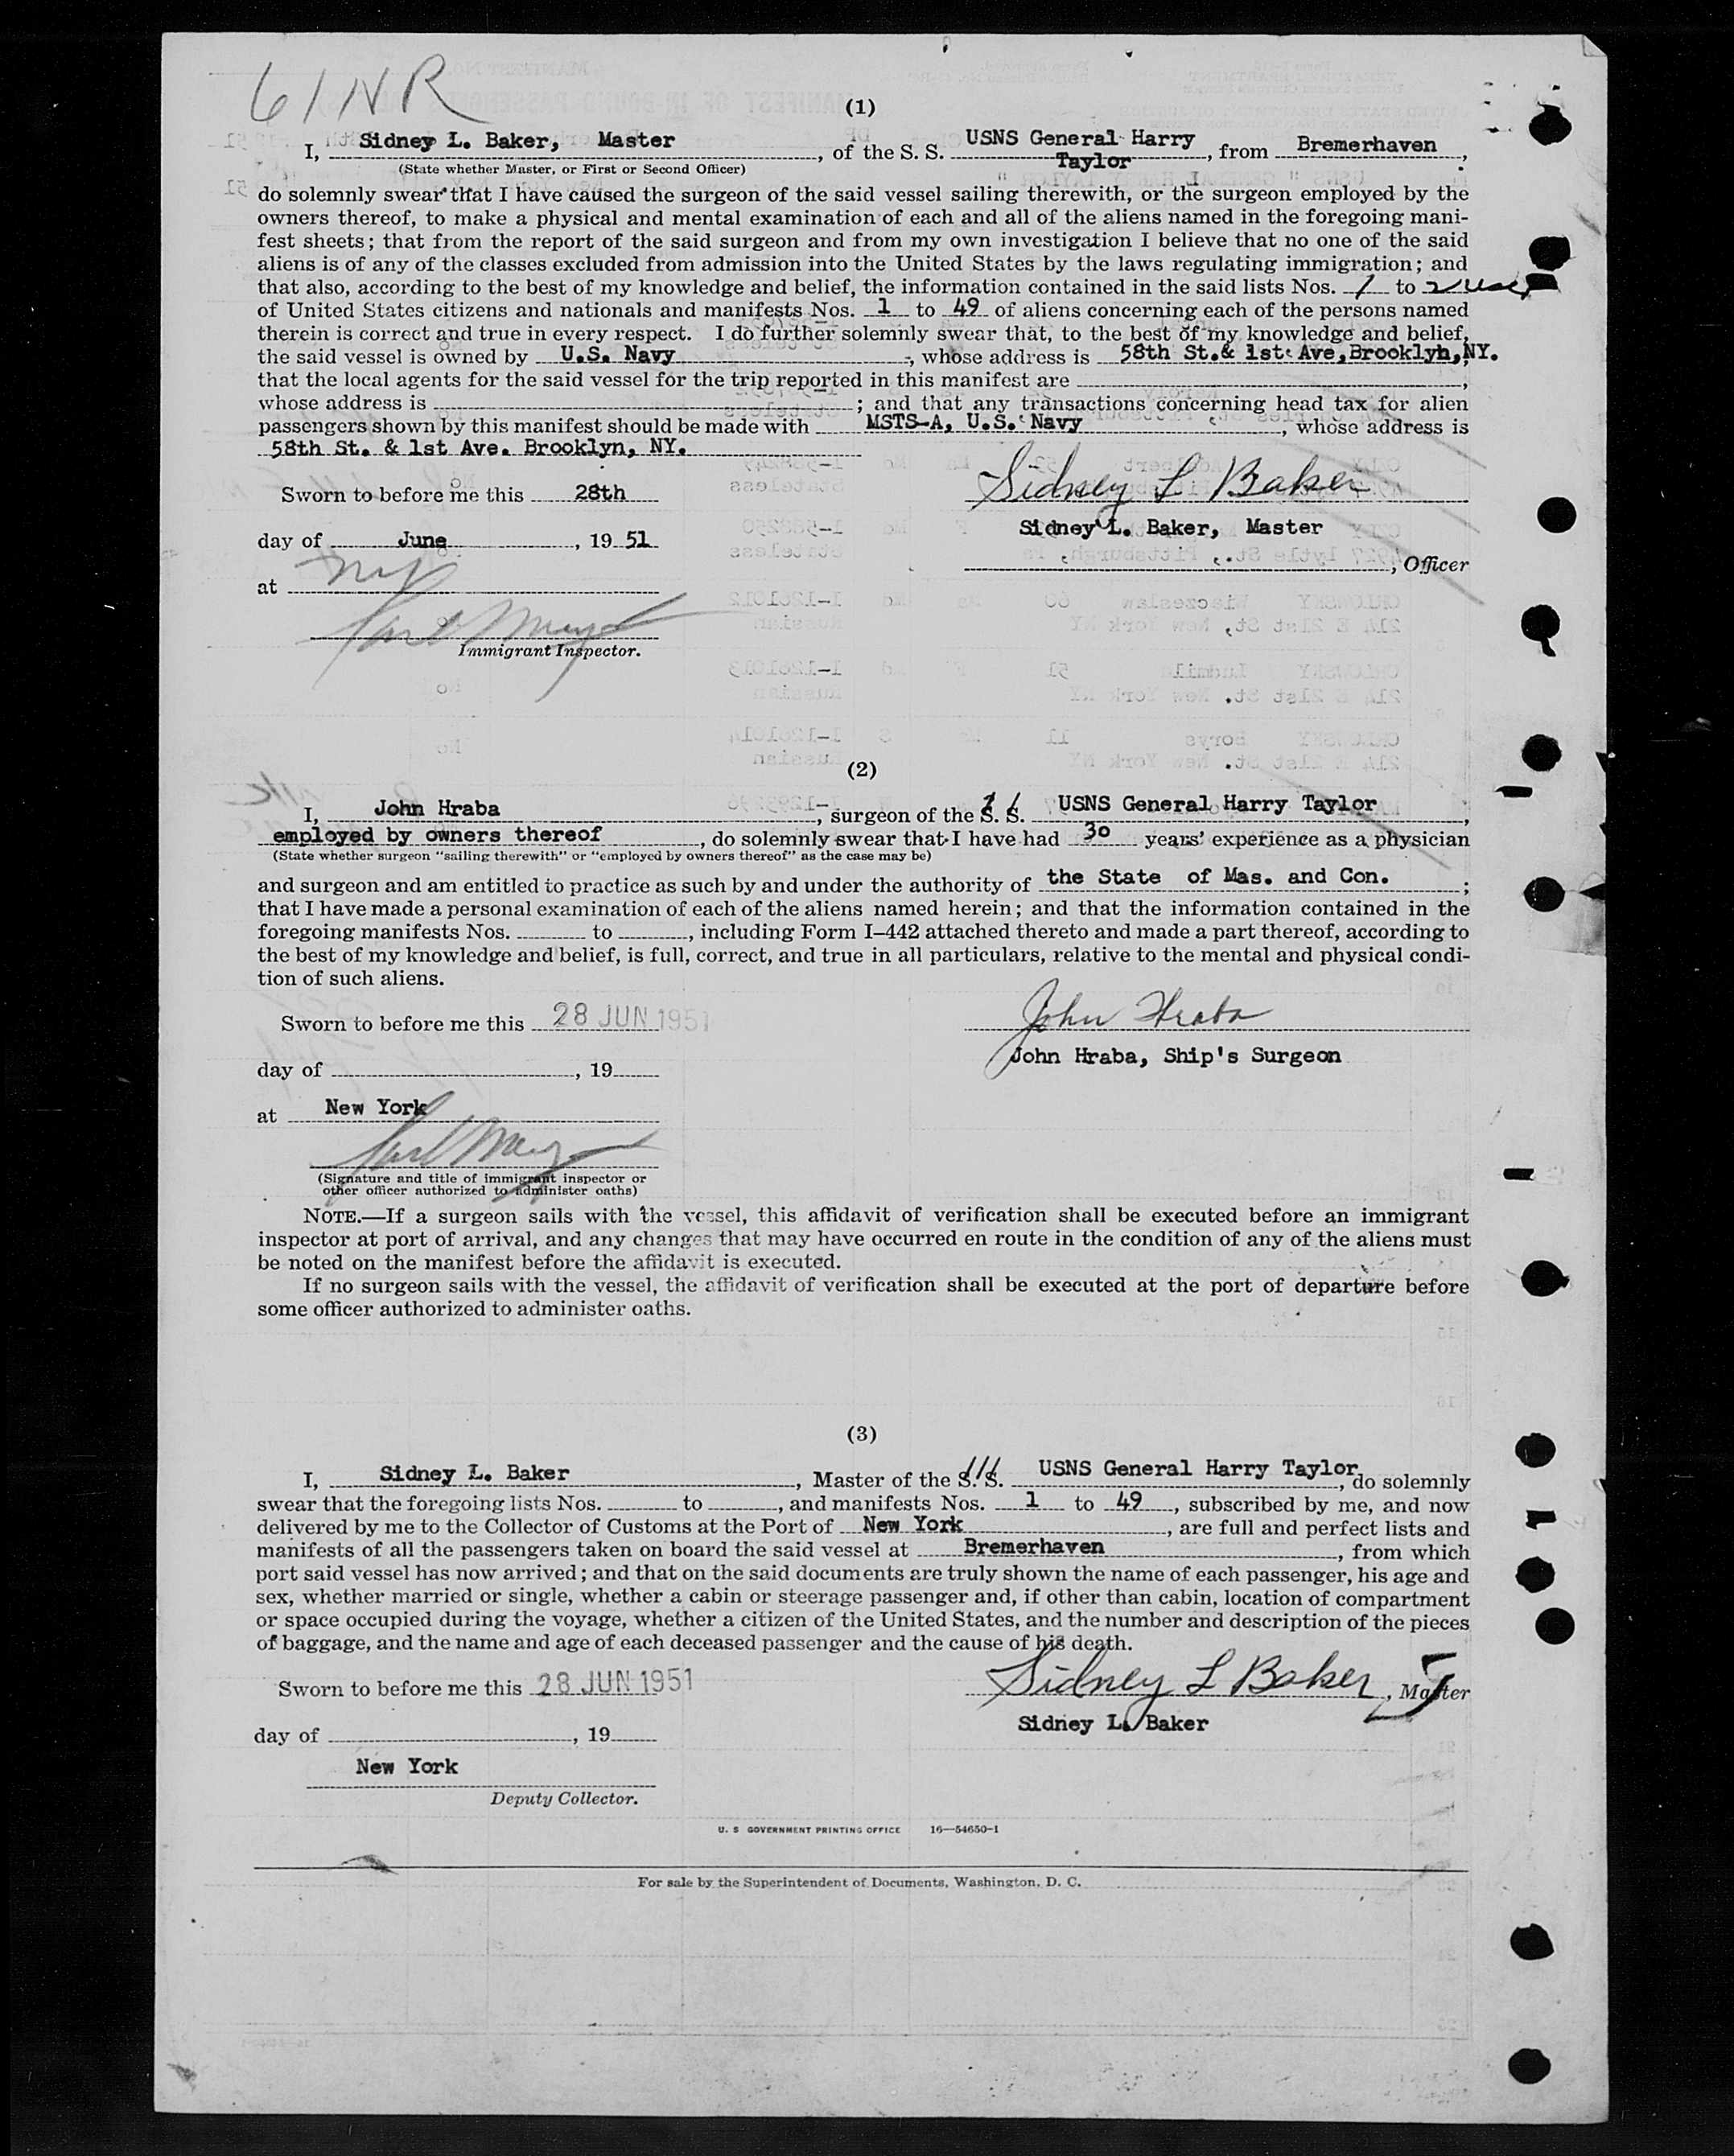 61NR
(1)
I, Sidney L. Baker, Master, of the S. S. USNS General Harry Taylor, from Bremerhaven,
(State whether Master, or First or Second Officer)
do solemnly swear that I have caused the surgeon of the said vessel sailing therewith, or the surgeon employed by the
owners thereof, to make a physical and mental examination of each and all of the aliens named in the foregoing mani-
fest sheets; that from the report of the said surgeon and from my own investigation I believe that no one of the said
aliens is of any of the classes excluded from admission into the United States by the laws regulating immigration; and
that also, according to the best of my knowledge and belief, the information contained in the said lists Nos. 1 to 2
of United States citizens and nationals and manifests Nos. 1 to 49 of aliens concerning each of the persons named
therein is correct and true in every respect. I do further solemnly swear that, to the best of my knowledge and belief,
the said vessel is owned by U.S. Navy, whose address is 58th St.& 1st Ave,Brooklyn,NY.
that the local agents for the said vessel for the trip reported in this manifest are ,
whose address is ; and that any transactions concerning head tax for alien
passengers shown by this manifest should be made with MSTS-A, U.S. Navy, whose address is
58th St. & 1st Ave. Brooklyn, NY.
Sidney L Baker
Sworn to before me this 28th
Sidney L. Baker, Master
day of June, 19 51
, Officer
at NY
Immigrant Inspector.
(2)
I, John Hraba, surgeon of the S. S. USNS General Harry Taylor,
employed by owners thereof, do solemnly swear that I have had 30 years' experience as a physician
(State whether surgeon "sailing therewith" or "employed by owners thereof" as the case may be)
and surgeon and am entitled to practice as such by and under the authority of the State of Mas. and Con. ;
that I have made a personal examination of each of the aliens named herein; and that the information contained in the
foregoing manifests Nos. to , including Form I-442 attached thereto and made a part thereof, according to
the best of my knowledge and belief, is full, correct, and true in all particulars, relative to the mental and physical condi-
tion of such aliens.
Sworn to before me this 28 JUN 1951
John Hraba
John Hraba, Ship's Surgeon
day of , 19
at New York
(Signature and title of immigrant inspector or
other officer authorized to administer oaths)
NOTE.—If a surgeon sails with the vessel, this affidavit of verification shall be executed before an immigrant
inspector at port of arrival, and any changes that may have occurred en route in the condition of any of the aliens must
be noted on the manifest before the affidavit is executed.
If no surgeon sails with the vessel, the affidavit of verification shall be executed at the port of departure before
some officer authorized to administer oaths.
(3)
I, Sidney L. Baker, Master of the S. S. USNS General Harry Taylor, do solemnly
swear that the foregoing lists Nos. to , and manifests Nos. 1 to 49, subscribed by me, and now
delivered by me to the Collector of Customs at the Port of New York, are full and perfect lists and
manifests of all the passengers taken on board the said vessel at Bremerhaven, from which
port said vessel has now arrived; and that on the said documents are truly shown the name of each passenger, his age and
sex, whether married or single, whether a cabin or steerage passenger and, if other than cabin, location of compartment
or space occupied during the voyage, whether a citizen of the United States, and the number and description of the pieces
of baggage, and the name and age of each deceased passenger and the cause of his death.
Sworn to before me this 28 JUN 1951
Sidney L Baker, Master
Sidney L. Baker
day of , 19
New York
Deputy Collector.
U. S GOVERNMENT PRINTING OFFICE 16—54650-1
For sale by the Superintendent of Documents, Washington, D. C.